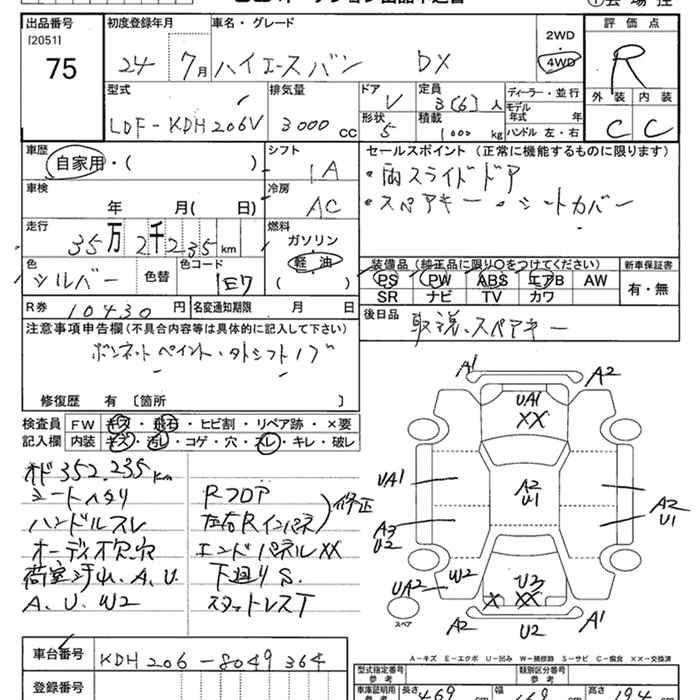 出品番号
[2051]
75
初度登録年月
24 7月
車名・グレード
ハイエースバン DX
2WD
4WD
評価点
R
外装 内装
C C
型式
LDF-KDH206V
排気量
3000 CC
ドア
V
形状
5
定員
3(6)人
積載
1000 kg
ディーラー・並行
モデル年式 年
ハンドル 左・右
車歴
自家用・( )
シフト
IA
車検
年 月( 日)
冷房
AC
走行
35万2千235km
燃料
ガソリン
軽油
( )
色
シルバー
色替
色コード
1E7
R券 10430円
名変通知期限 月 日
セールスポイント (正常に機能するものに限ります)
・両スライドドア
・スペアキー ・シートカバー
装備品 (純正品に限り○をつけてください)
PS PW ABS エアB AW
SR ナビ TV カワ
新車保証書
有・無
後日品
取説、スペアキー
注意事項申告欄(不具合内容等は具体的に記入して下さい)
ボンネットペイント・タトシフトノブ
修復歴 有 〔箇所 〕
検査員記入欄
FW キズ・飛石・ヒビ割・リペア跡・×要
内装 キズ・汚レ・コゲ・穴・スレ・キレ・破レ
オド352.235km
シートヘタリ
ハンドルスレ
オーディオ欠穴
荷室汚れ、A、U、
A、U、W2
Rフロア
左右Rインパネ
エンドパネルXX
修正
下廻りS.
スタットレスT
A1
A2
UA1
XX
UA1
A2
U1
A2
U1
A3
U2
UA2
W2
U3
X XX
スペア
A2
U2
A1
A-キズ E-エクボ U-凹み W-補修跡 S-サビ C-腐食 XX-交換済
車台番号 KDH206-8049364
登録番号
型式指定番号
参考
類別区分番号
参考
車庫証明用
参考
長さ 469 cm
幅 169 cm
高さ 224 cm